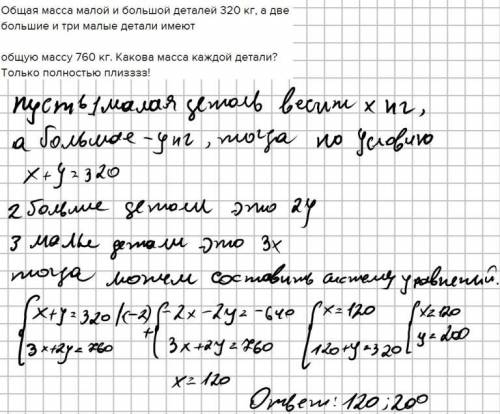 Общая масса малой и большой деталей 320 кг, а две
большие и три малые детали имеют
общую массу 760 кг. Какова масса каждой детали?
Только полностью плизззз!
пусть 1 малая деталь весит x кг,
а большая - y кг, тогда по условию
x+y=320
2 больше детали это 2y
3 малые детали - это 3x
тогда можем составить систему уравнений.
{x+y=320 |(-2) {-2x-2y=-640 {x=120 {x=120
{3x+2y=760 + {3x+2y=760 {120+y=320 {y=200
x=120
Ответ: 120; 200